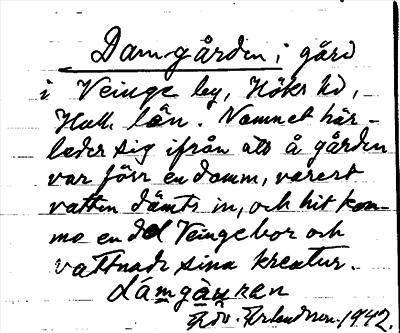 Damgården, i gård
i Veinge by, Höks hd,
Hall. län. Namnet här-
leder sig ifrån att å gården
var förr en damm, varest
vatten dämts in, och hit kom-
mo en del Veingebor och
vattnade sina kreatur.
dámgà̱ṟan
Edv. Erlandsson. 1942.